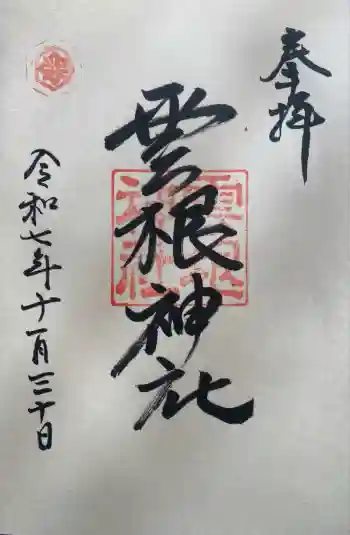 奉拝
雲根神社
雲根神社
令和七年十一月三十日